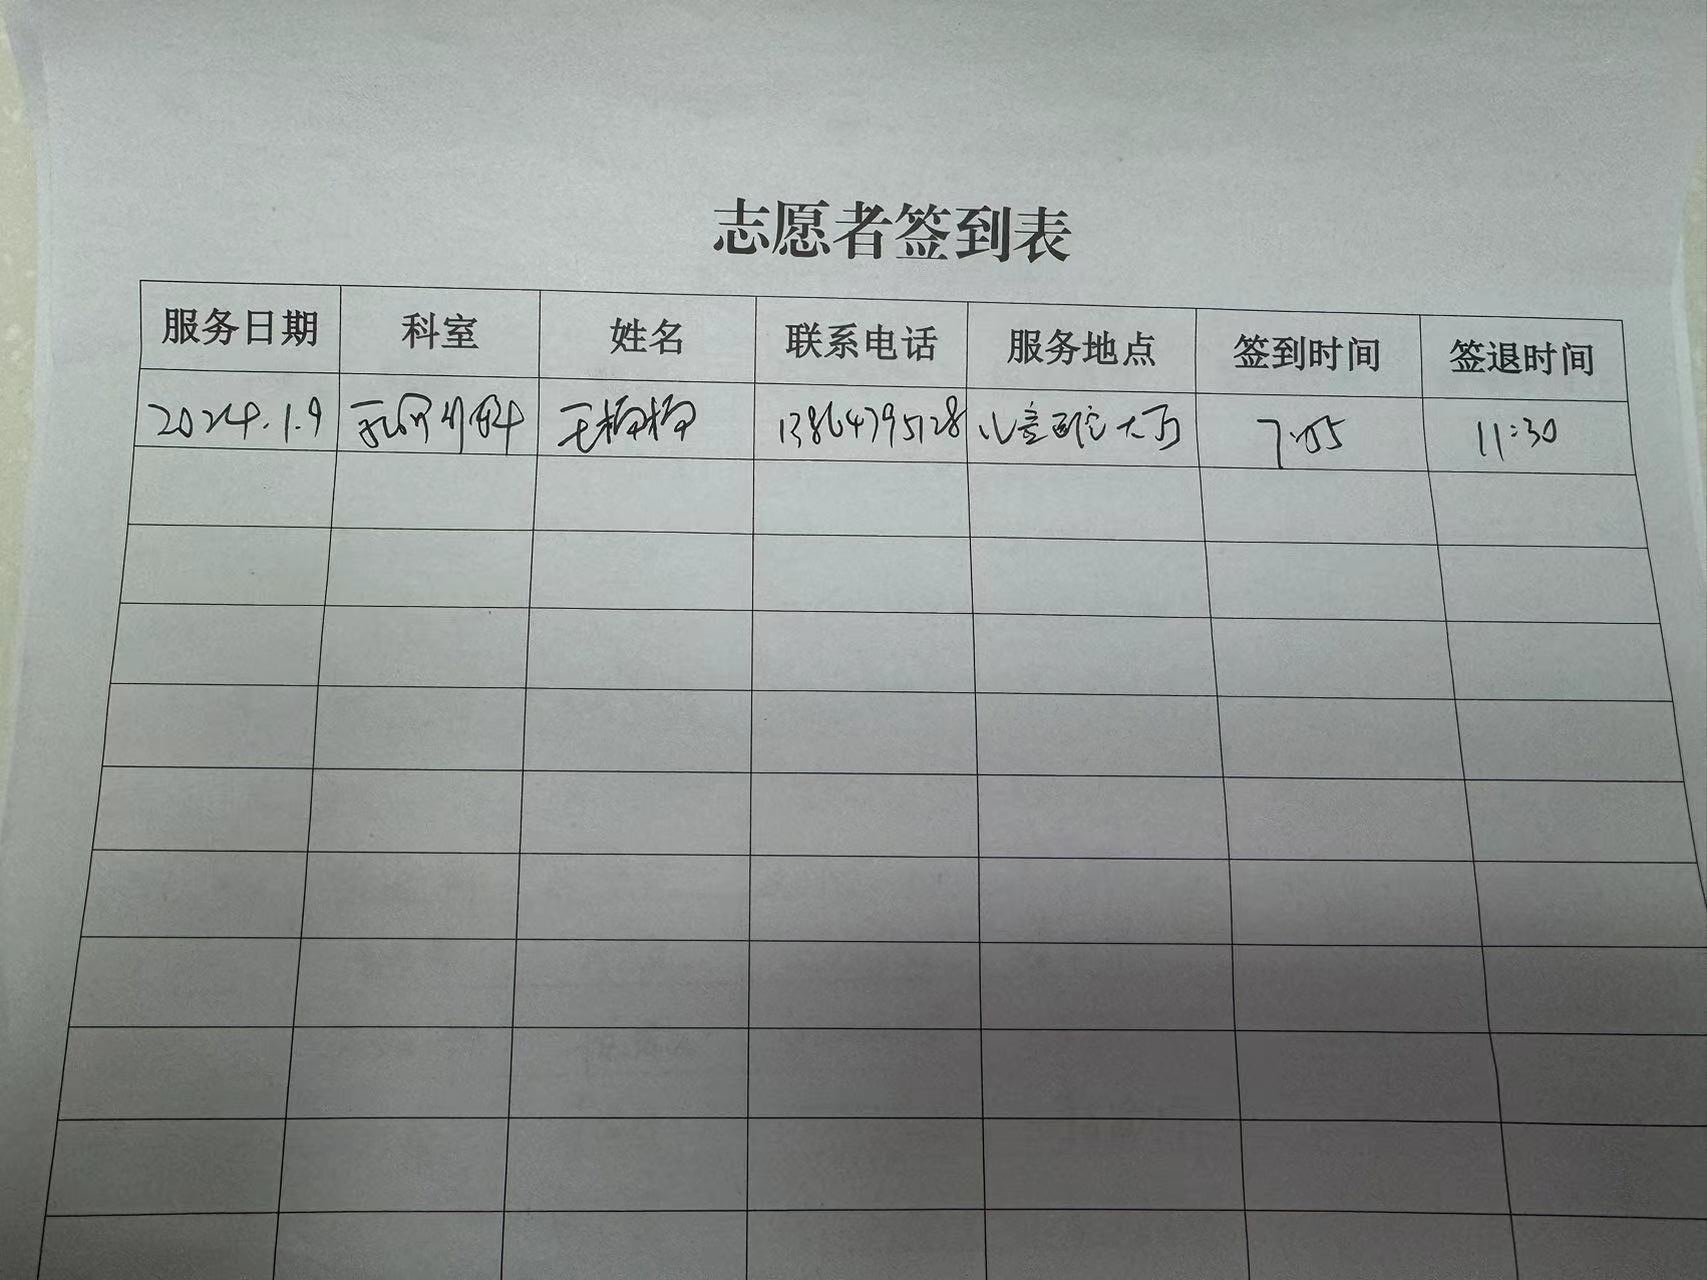 志愿者签到表
服务日期 科室 姓名 联系电话 服务地点 签到时间 签退时间
2024.1.9 乳腺外科 王楠楠 13864795128 儿童医院大厅 7:05 11:30